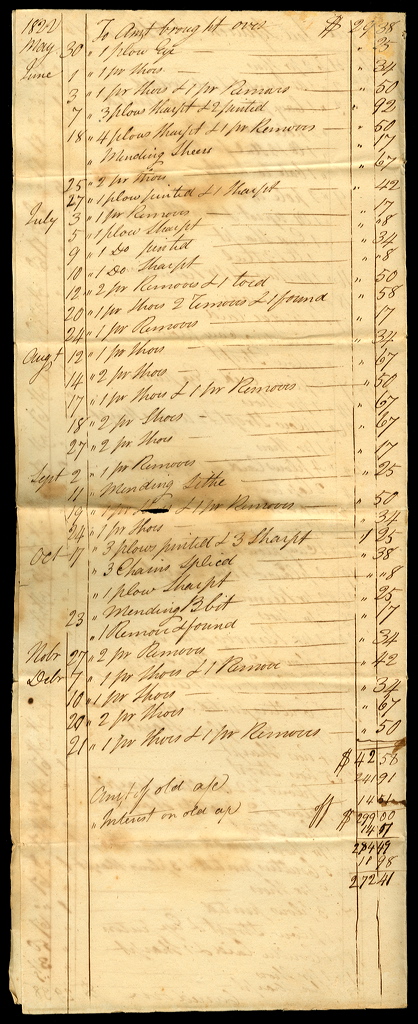 1822 To Amt brought over $ 29 38
May 30 " 1 plow " 25
June 1 " 1 pr Shoes " 34
3 " 1 pr Shoes & 1 pr Removs " 50
7 " 3 plows Sharpt & 2 pinted " 92
18 " 4 plows Sharpt & 1 pr Removs " 50
" Mending Sheers " 17
25 " 2 pr Shoes " 67
27 " 1 plow pinted & 1 Sharpt " 42
July 3 " 1 pr Removes " 17
5 " 1 plow Sharpt " " 8
9 " 1 Do pinted " 34
10 " 1 Do Sharpt " " 8
12 " 2 pr Removes & 1 toed " 50
20 " 1 pr Shoes 2 Removs & 1 found " 58
24 " 1 pr Removes " 17
Augt 12 " 1 pr Shoes " 34
14 " 2 pr Shoes " 67
17 " 1 pr Shoes & 1 pr Removes " 50
18 " 2 pr Shoes " 67
27 " 2 pr Shoes " 67
Sept 2 " 1 pr Removes " 17
11 " Mending Sithe " 25
19 " 1 pr & 1 pr Removes " 50
24 " 1 pr Shoes " 34
Oct 17 " 3 plows pinted & 3 Sharpt 1 25
" 3 Chains Spliced " 38
" 1 plow Sharpt " " 8
23 " Mending Bbit " 25
" 1 Remove & found " 17
Nobr 27 " 2 pr Removes " 34
Debr 7 " 1 pr Shoes & 1 Remove " 42
10 " 1 pr Shoes " 34
20 " 2 pr Shoes " 67
21 " 1 pr Shoes & 1 pr Removes " 50
$ 42 58
Amt of old a/c 241 91
" Interest on old a/c 14 51
$ 299 00
14 51
284 49
11 98
272 41